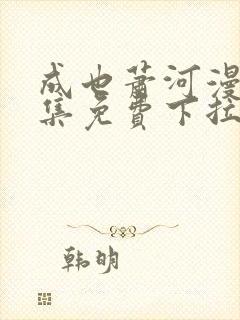 成也萧河漫
集免費下拉
韩明